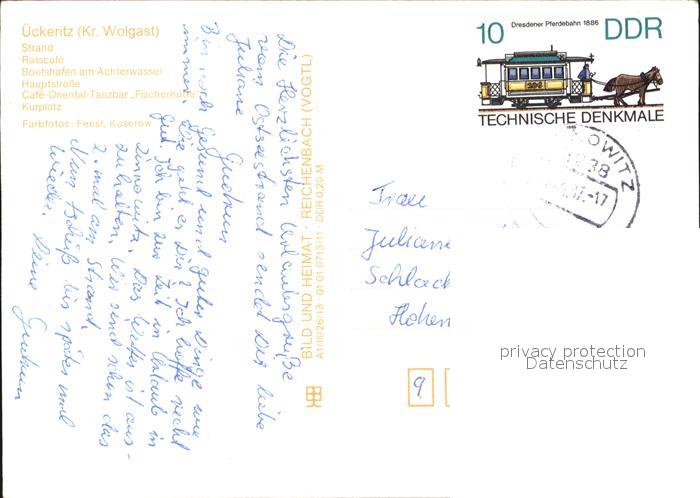 Ückeritz (Kr. Wolgast)
Strand
Ratscafé
Bootshafen am Achterwasser
Hauptstraße
Café-Oriental-Tanzbar „Fischerhütte"
Kurplatz
Farbfotos: Feest, Koserow
BILD UND HEIMAT · REICHENBACH (VOGTL)
A1/III/26/13 · 01 01 0713/11 · DDR 0,20 M
Die herzlichsten Urlaubsgrüße
vom Ostseestrand sendet Dir liebe
Juliane
Gudrun
Bin noch gesund und guter Dinge wie
immer. Wie geht es Dir? Ich hoffe recht
gut. Ich bin zur Zeit in Urlaub in
Zinnowitz. Das Wetter ist aus-
zuhalten. Wir sind schon das
2. mal am Strand.
Nun tschüß bis später mal
wieder. Deine Gudrun
10 Dresdener Pferdebahn 1886 DDR
292
TECHNISCHE DENKMALE
OWITZ
2238
87.-17
Frau
Juliane
Schlack
Hohen
9
privacy protection
Datenschutz